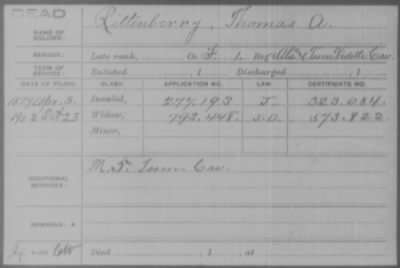 DEAD
NAME OF SOLDIER: Rittenberry, Thomas A.
SERVICE: Late rank, Co. F, 1 Reg't Ala & Tenn Vidette Cav.
TERM OF SERVICE: Enlisted , 1 Discharged , 1
DATE OF FILING. CLASS. APPLICATION NO. LAW. CERTIFICATE NO.
1879 Mar. 3. Invalid, 277.193 J. 323.034
190 Oct 23 Widow, 793.448. 573.822
Minor,
ADDITIONAL SERVICES: M. F. Tenn. Cav.
REMARKS:
Died , 1 , at